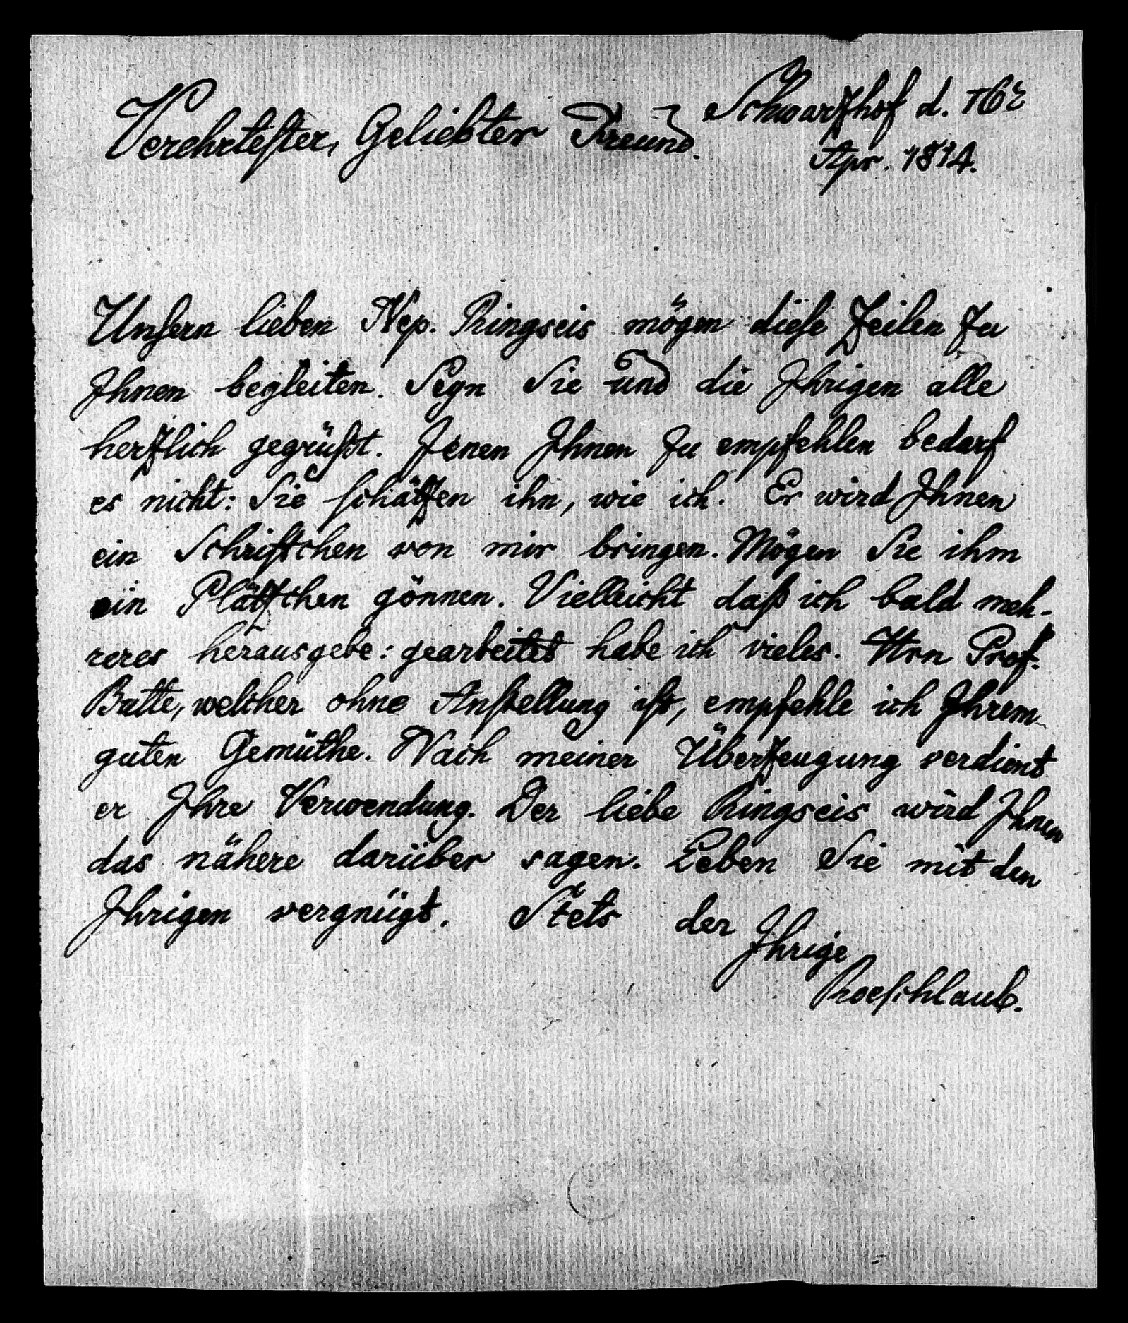 Schwarzhof d. 16t
Verehrtester, Geliebter Freund.
Apr. 1814.
Unsern lieben Nep. Ringseis mögen diese Zeilen zu
Ihnen begleiten. Seyn Sie und die Ihrigen alle
herzlich gegrüßt. Jenen Ihnen zu empfehlen bedarf
es nicht: Sie schätzen ihn, wie ich. Er wird Ihnen
ein Schriftchen von mir bringen. Mögen Sie ihm
ein Plätzchen gönnen. Vielleicht daß ich bald meh-
reres herausgebe: gearbeitet habe ich vieles. Hrn Prof.
Butte, welcher ohne Anstellung ist, empfehle ich Ihrem
guten Gemüthe. Nach meiner Überzeugung verdient
er Ihre Verwendung. Der liebe Ringseis wird Ihnen
das nähere darüber sagen. Leben Sie mit den
Ihrigen vergnügt. Stets der
Ihrige
Roeschlaub.